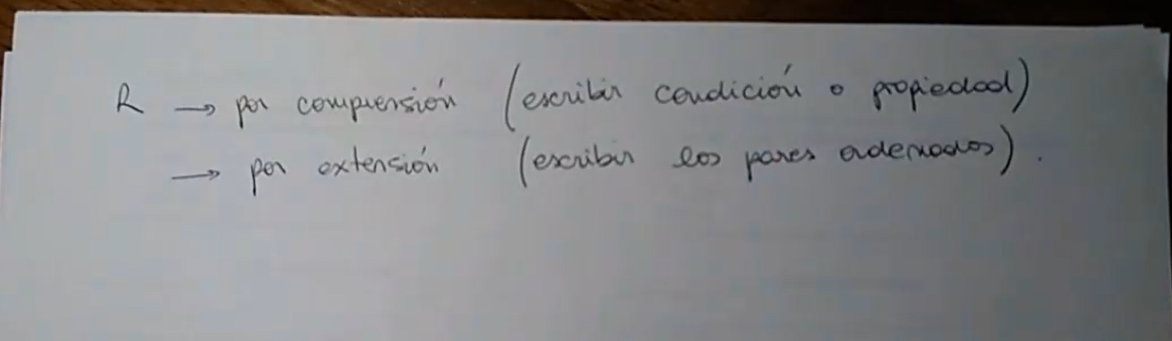 R → por comprensión (escribir condición o propiedad)
→ por extensión (escribir los pares ordenados).